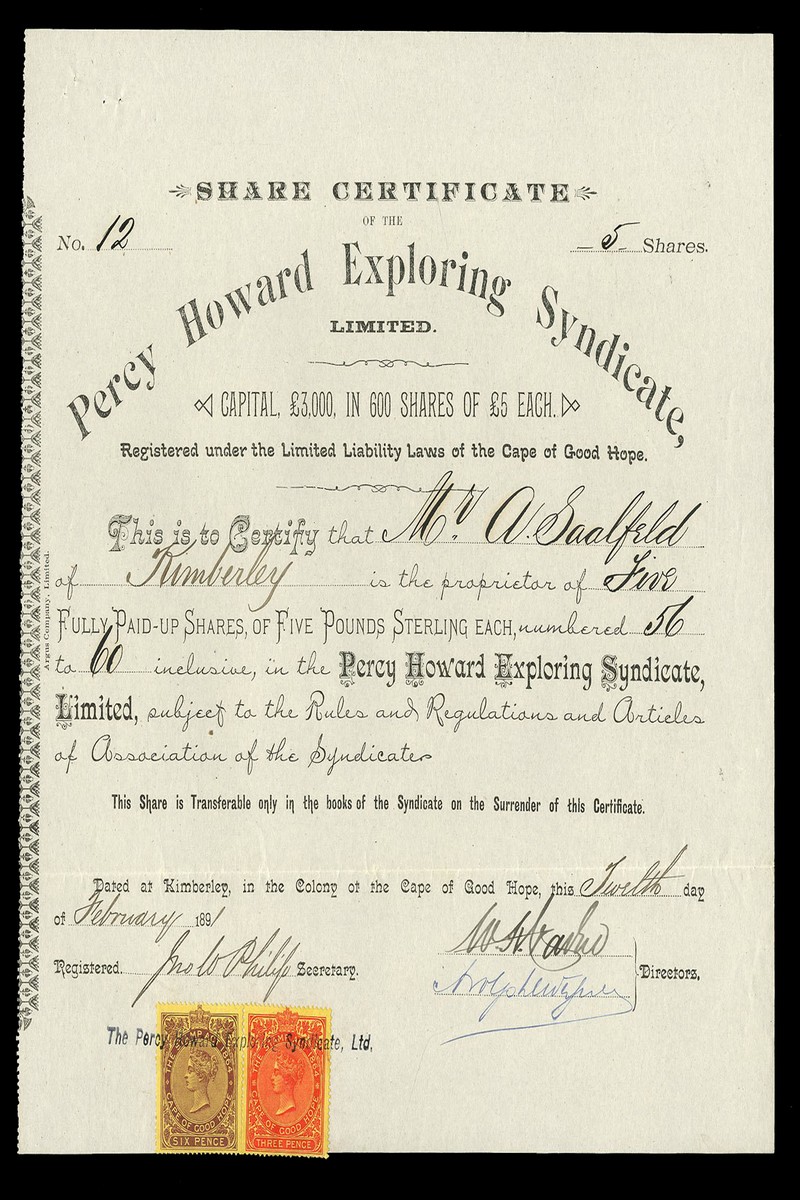 SHARE CERTIFICATE
OF THE
No. 12
5 Shares.
Percy Howard Exploring Syndicate,
LIMITED.
CAPITAL, £3,000, IN 600 SHARES OF £5 EACH.
Registered under the Limited Liability Laws of the Cape of Good Hope.
This is to Certify that Mr. A. Saalfeld
of Kimberley is the proprietor of Five
FULLY PAID-UP SHARES, OF FIVE POUNDS STERLING EACH, numbered 56
to 60 inclusive, in the Percy Howard Exploring Syndicate,
Limited, subject to the Rules and Regulations and Articles
of Association of the Syndicate
This Share is Transferable only in the books of the Syndicate on the Surrender of this Certificate.
Dated at Kimberley, in the Colony of the Cape of Good Hope, this Twelth day
of February 1891
Registered. Jno W Philip Secretary.
Directors.
The Percy Howard Exploring Syndicate, Ltd.
THE STAMP ACT 1864
CAPE OF GOOD HOPE
SIX PENCE
THE STAMP ACT 1864
CAPE OF GOOD HOPE
THREE PENCE
Argus Company, Limited.